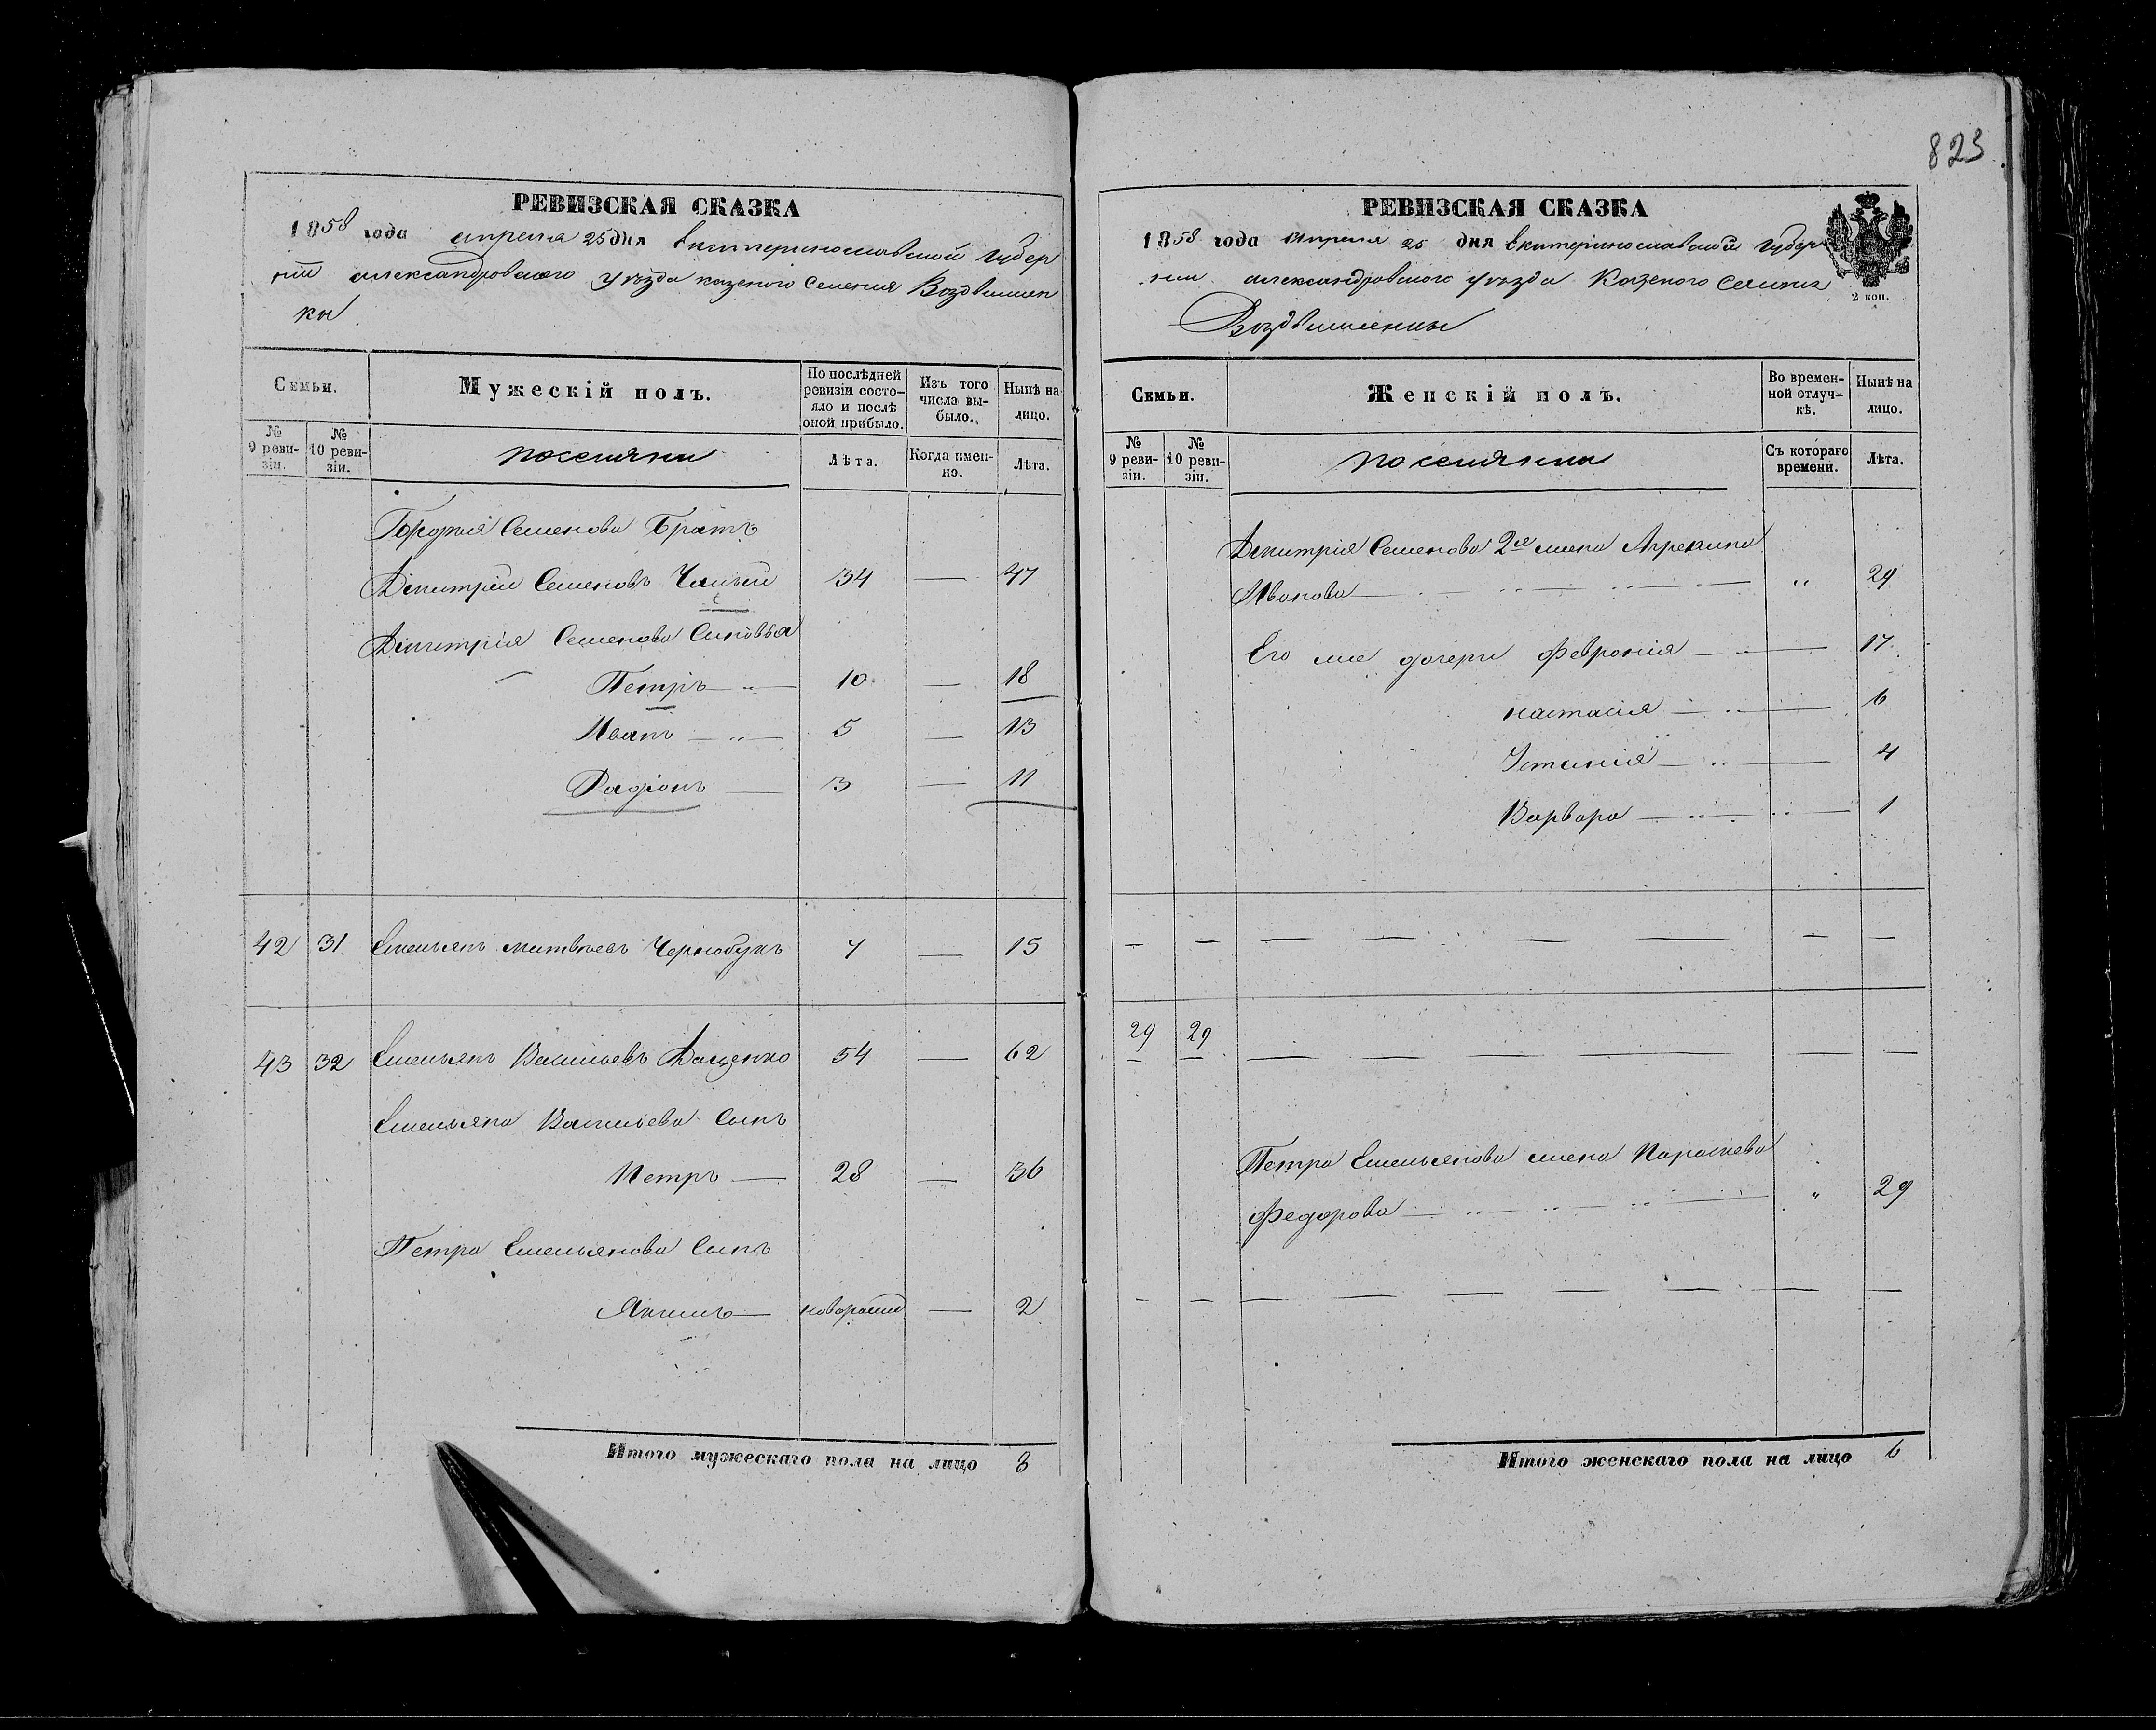 823
РЕВИЗСКАЯ СКАЗКА
1858 года апреля 25 дня Екатеринославской Губер
нiи александровского уезда казеного селения Воздвижен
ки
Семьи.
Мужескiй полъ.
По послѣдней ревизiи состояло и послѣ оной прибыло.
Изъ того числа выбыло.
Нынѣ на лицо.
№ 9 ревизiи.
№ 10 ревизiи.
поселяни
Лѣта.
Когда именно.
Лѣта.
Семенова Братъ
Дмитрiй Семеновъ 34 — 47
Дмитрiя Семенова Синовья
Петръ — 10 — 18
Иванъ — 5 — 13
Радiонъ — 3 — 11
42 31. Емельянъ Матвѣевъ Чернобукъ 7 — 15
43 32 Емельянъ Васильевъ Даценко 54 — 62
Емельяна Васильева Сынъ
Петръ — 28 — 36
Петра Емельянова Сынъ
Якимъ — новорожд — 2
Итого мужескаго пола на лицо 8
РЕВИЗСКАЯ СКАЗКА
1858 года Апреля 25 дня Екатеринославской Губер
нии александровского уезда Казеного Селения
Воздвиженки
2 коп.
Семьи.
Женскiй полъ.
Во временной отлучкѣ.
Нынѣ на лицо.
№ 9 ревизiи.
№ 10 ревизiи.
поселянки
Съ котораго времени.
Лѣта.
Дмитрiя Семенова 2я жена
Иванова — „ 29
Его же дочери Феврония — 17
настасiя — 6
4
Варвара — 1
29 29
Петра Емельянова жена Параскева
Федорова — „ 29
Итого женскаго пола на лицо 6